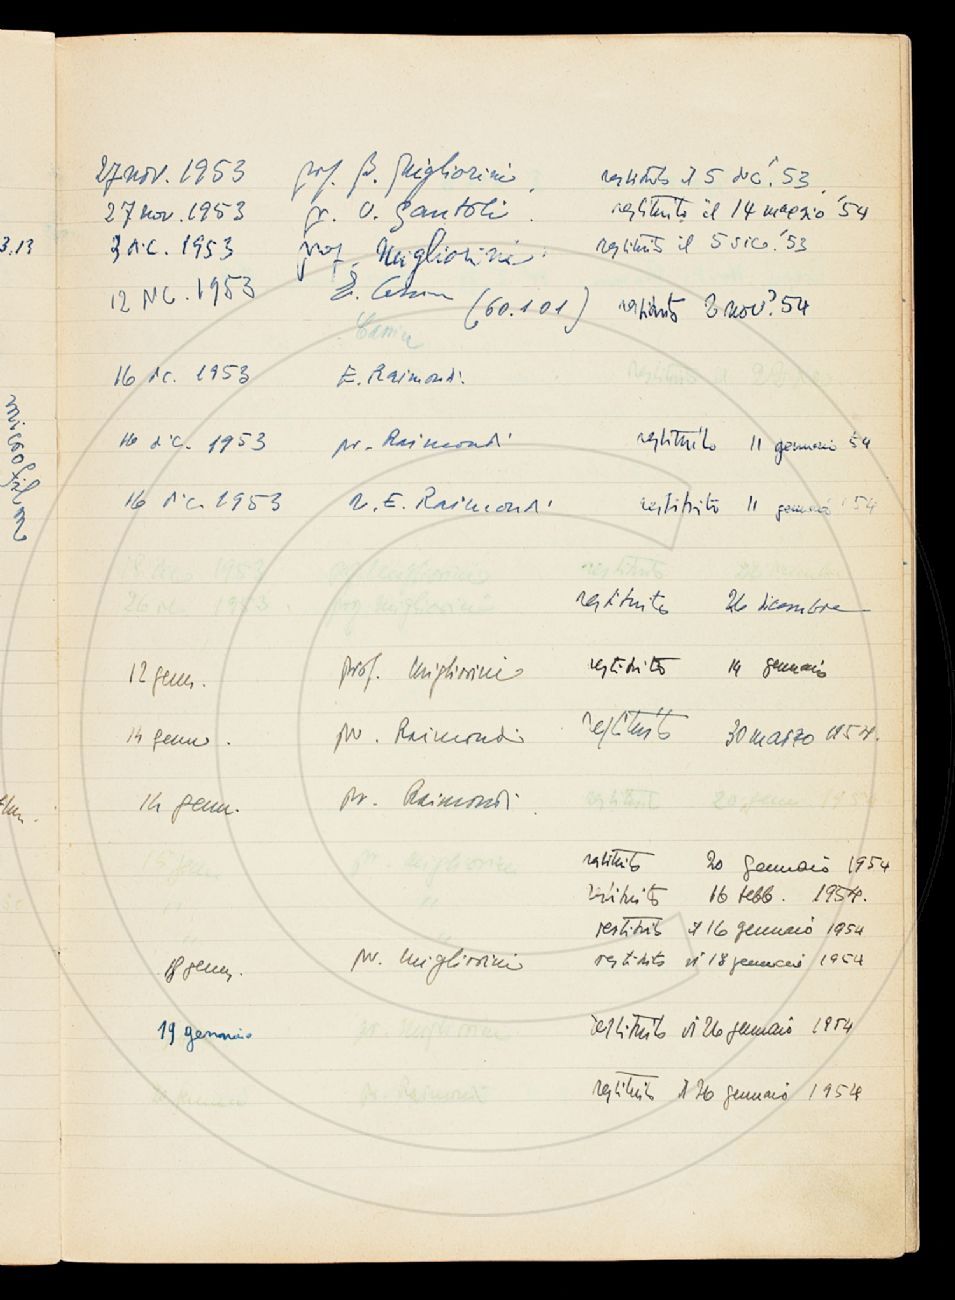 27 nov. 1953 prof. B. Migliorini restituito il 5 dic. '53
27 nov. 1953 pr. V. Santoli restituito il 14 maggio '54
3.13 3 dic. 1953 prof. Migliorini restituito il 5 dic. '53
12 dic. 1953 E. (60.101) restituito 2 nov. 54
16 dic. 1953 E. Raimondi restituito il
microfilm
16 dic. 1953 pr. Raimondi restituito 11 gennaio '54
16 dic. 1953 E. Raimondi restituito 11 gennaio '54
1953 Migliorini restituito
26 dic. 1953 prof. Migliorini restituito 26 dicembre
12 genn. prof. Migliorini restituito 14 gennaio
14 genn. pr. Raimondi restituito 30 marzo 1954.
14 genn. pr. Raimondi restituito 20 genn. 1954
15 genn. pr. Migliorini restituito 20 gennaio 1954
" " restituito 16 febb. 1954.
" " restituito il 16 gennaio 1954
18 genn. pr. Migliorini restituito il 18 gennaio 1954
19 gennaio pr. Migliorini restituito il 26 gennaio 1954
gennaio pr. Raimondi restituito il 26 gennaio 1954